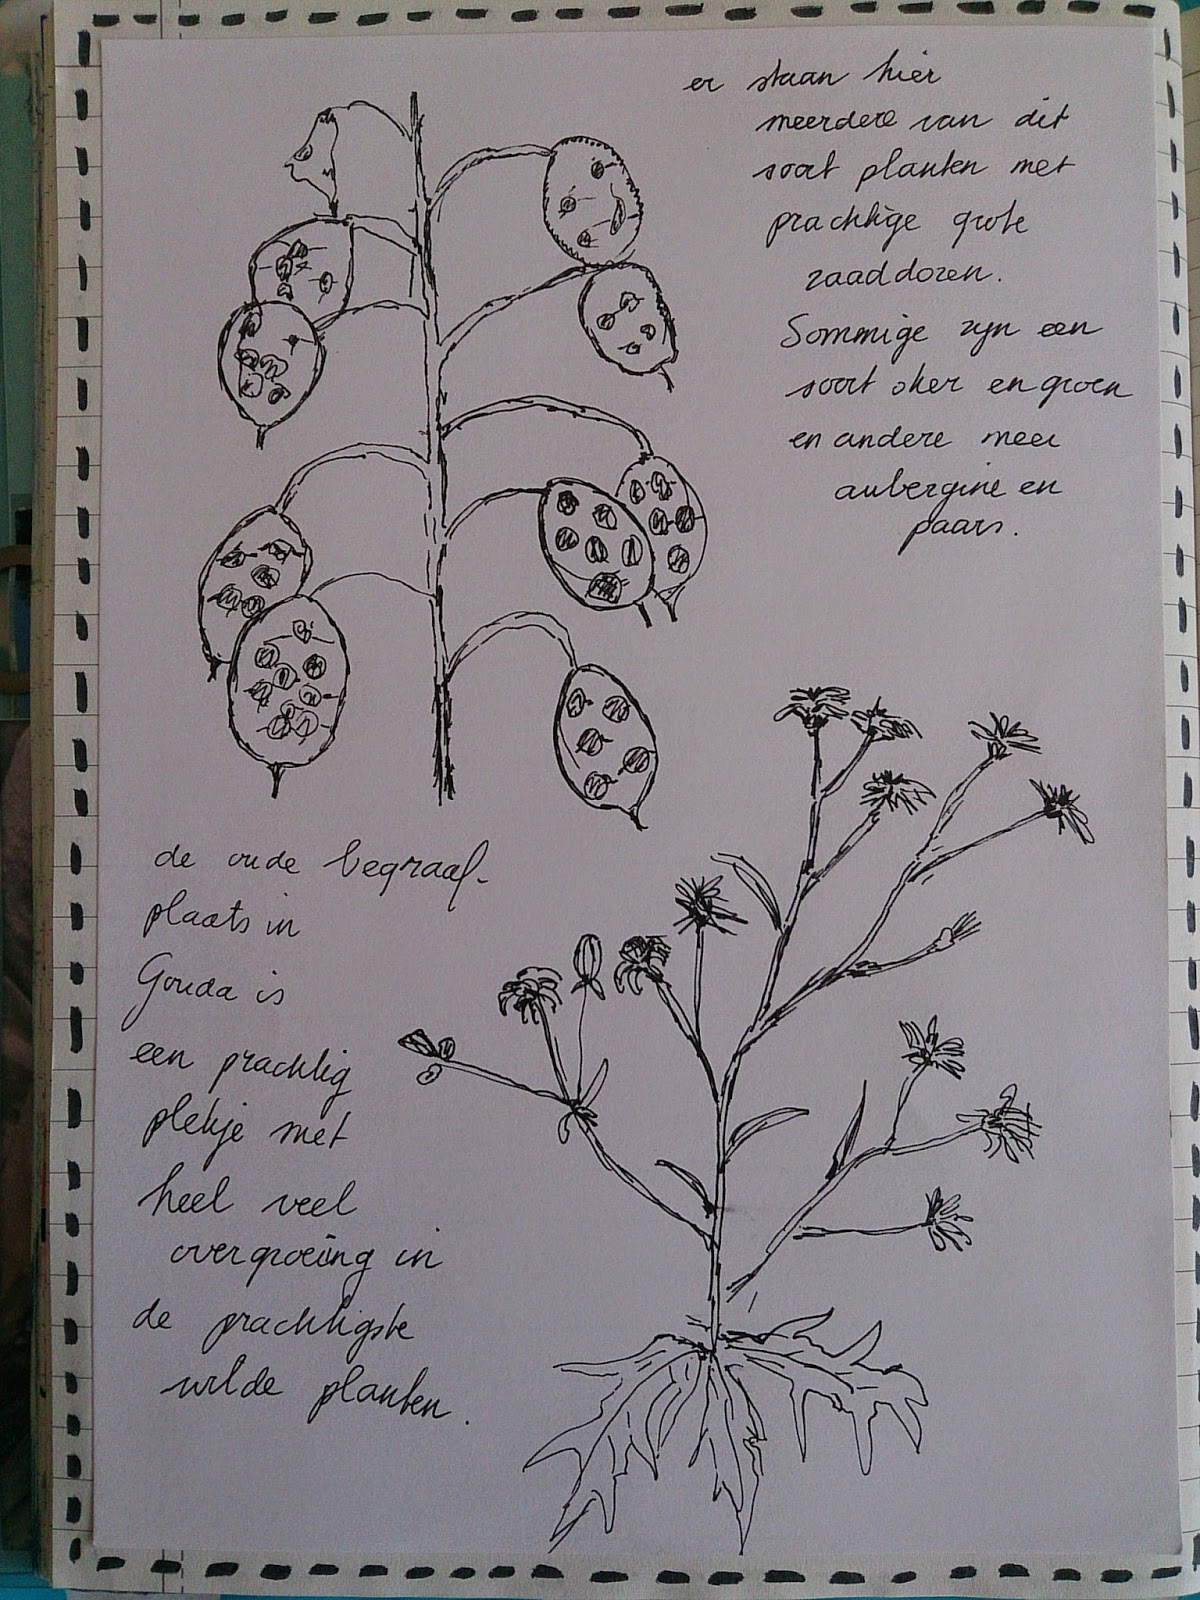 er staan hier
meerdere van dit
soort planten met
prachtige grote
zaaddozen.
Sommige zyn een
soort oker en groen
en andere meer
aubergine en
paars.
de oude begraaf-
plaats in
Gouda is
een prachtig
plekje met
heel veel
overgroeing in
de prachtigste
wilde planten.